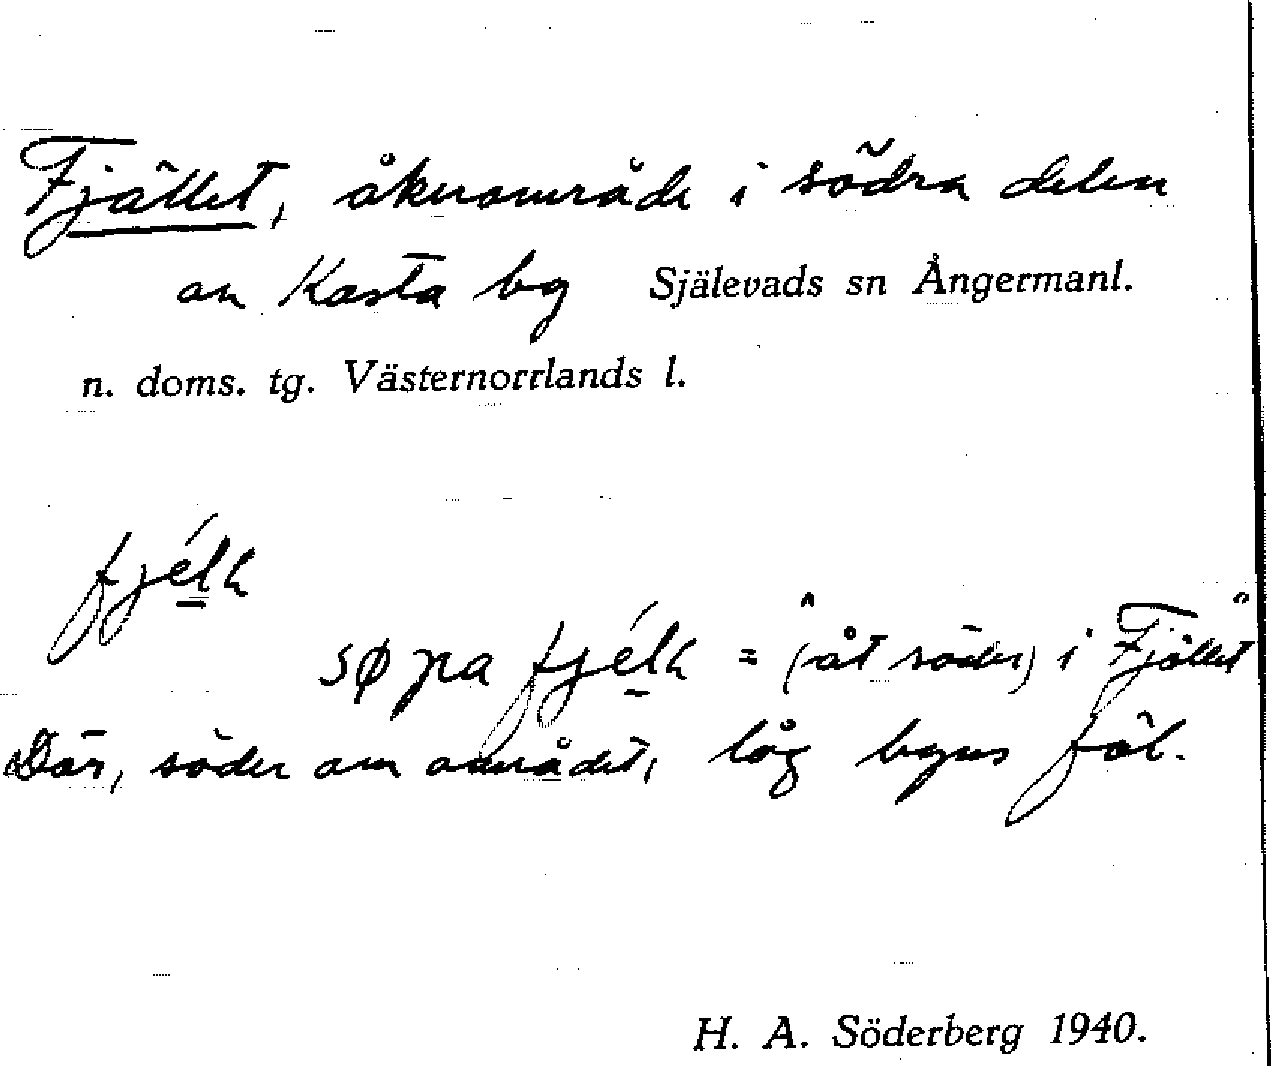 Fjället, åkerområde i södra delen
av Kasta by Själevads sn Ångermanl.
n. doms. tg. Västernorrlands l.
fjélḷ
sø pa fjélḷ = (åt söder) i Fjället
Där, söder om området, låg byns fäb.
H. A. Söderberg 1940.